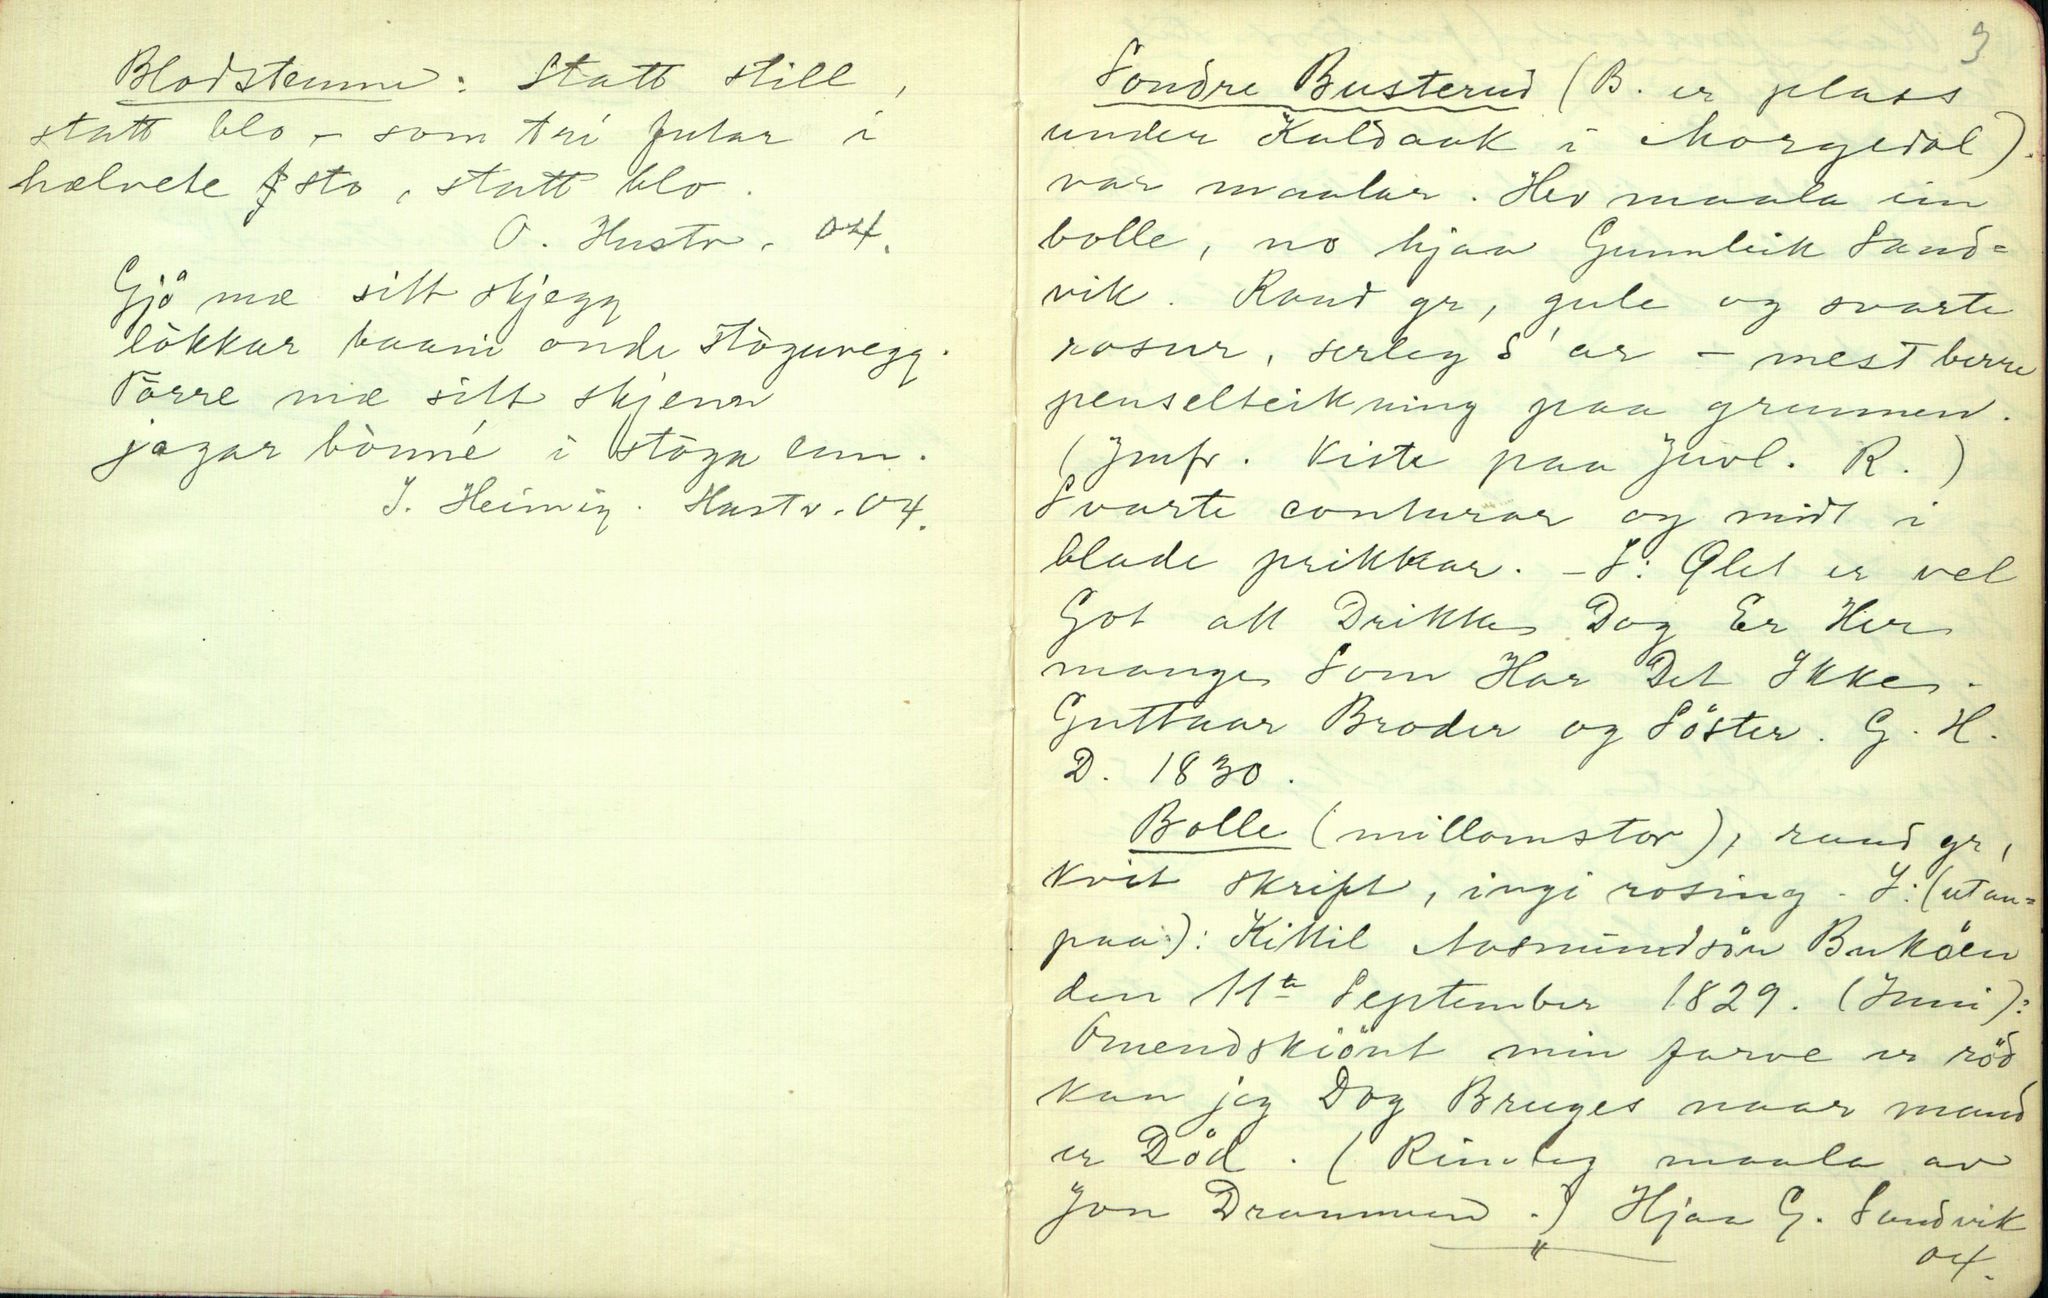 Blodstemme: Statt still,
statt blo - som tri futar i
hælvete sto, statt blo.
O. Hustv. 04.
Gjö mæ sitt skjegg
lòkkar baani onde stòguvegg.
Tòrre mæ sitt skjenn
jagar bònné i stògu enn.
J. Heimig. Hustv. 04.
3
Sondre Busterud (B. er plass
under Kaldaak i Morgedal).
var maalar. Hev maala ein
bolle, no hjaa Gunnleik Sand=
vik. Raud gr, gule og svarte
rosur, serleg S'ar - mest berre
penselteikning paa grunnen.
(Jmfr. Kiste paa Juvl. R.)
Svarte conturar og midt i
blade prikkar. - I: Ølet er vel
Got att Drikke Dog Er Her
mange Som Har Det Ikke -
Guttaar Broder og Söster. G. H.
D. 1830.
Bolle (millomstor), raud gr,
kvit skrift, ingi rosing - I: (utan=
paa): Kittil Aasmundsön Buköen
den 11te September 1829. (Inni):
Omendskiönt min farve er röd
kan jeg Dog Bruges naar mand
er Död. (Rimleg maala av
Jon Drammen.) Hjaa G. Sandvik
04.